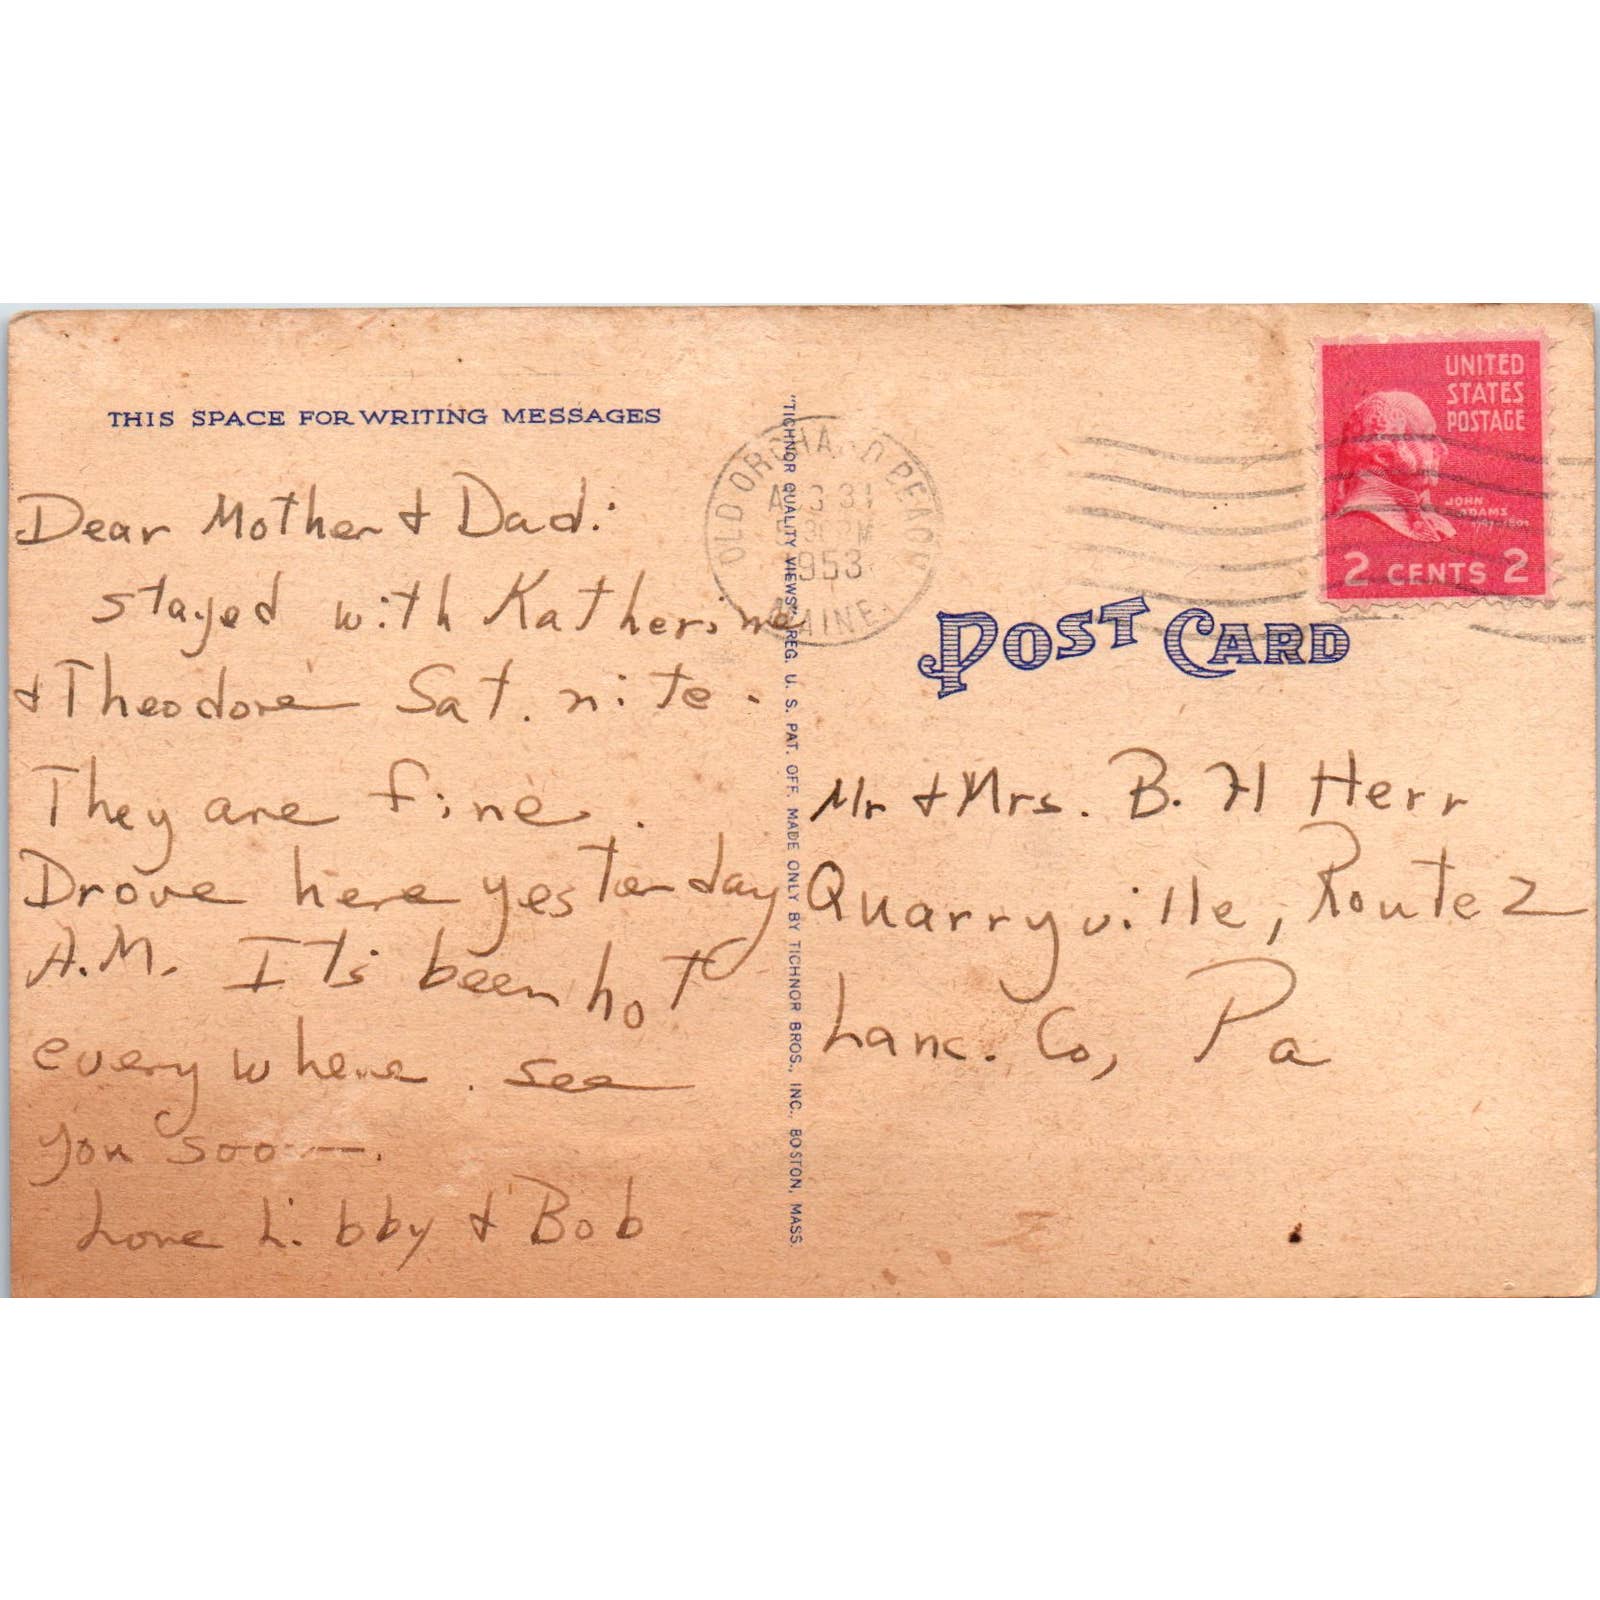 THIS SPACE FOR WRITING MESSAGES
Dear Mother & Dad:
stayed with Katherine
& Theodore Sat. nite.
They are fine.
Drove here yesterday
A.M. It's been hot
everywhere. see
you soon.
Love Libby & Bob
"TICHNOR QUALITY VIEWS," REG. U. S. PAT. OFF. MADE ONLY BY TICHNOR BROS., INC., BOSTON, MASS.
OLD ORCHARD BEACH
AUG 31
PM
1953
MAINE
UNITED
STATES
POSTAGE
JOHN
ADAMS
2 CENTS 2
POST CARD
Mr & Mrs. B. H Herr
Quarryville, Route 2
Lanc. Co, Pa